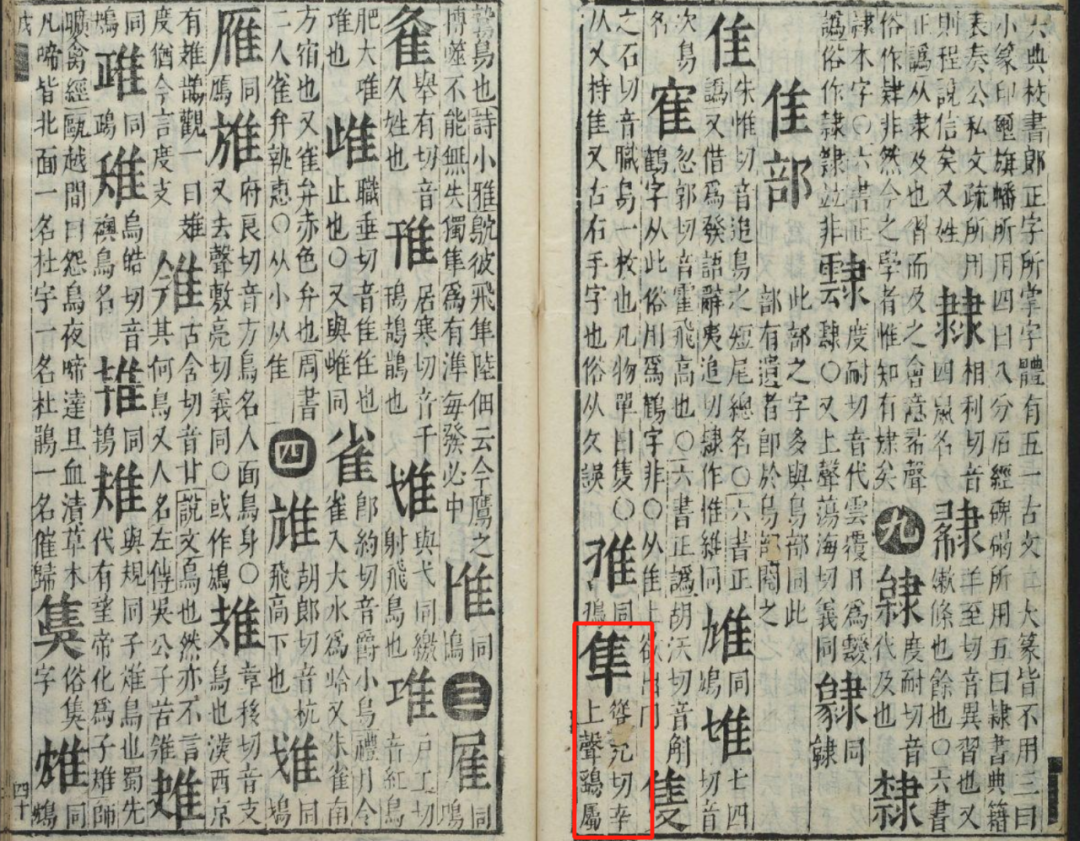 大典校書郎正字所掌字體有五一古文二大篆皆不用三曰
小篆印璽旗幡所用四曰八分石經碑碣所用五曰隸書典籍
表奏公私文疏所用則程說信矣又姓 相利切音四鼠名 羊至切音異習也又漱條也餘也○六書
正譌从隶及也習而及之會意希聲俗作肄非然今之學者惟知有肄矣 九 度耐切音代及也 隸
隸本字○六書正譌俗作隸並非 靆 度耐切音代雲覆日為靉靆○又上聲蕩海切義同 同隸
隹部 此部之字多與鳥部同此部有遺者即於鳥部閱之
隹 朱惟切音追鳥之短尾總名○六書正譌又借為發語辭夷追切隸作惟維同 同鳩 七四切音
次鳥名 寉 忽郭切音霍飛高也○六書正譌胡沃切音鶴字从此俗用為鶴字非○从隹上欲出冂 隻
之石切音職鳥一枚也凡物單曰隻○从又持隹又古右手字也俗从久誤 同鴉 隼 聳允切辛上聲鷂屬
鷙鳥也詩小雅鴥彼飛隼陸佃云今鷹之搏噬不能無失獨隼為有準每發必中 同鳩 三 雇 同
舉有切音久姓也 雃 居寒切音干鳽鴣鵲也 隿 與弋同繳射飛鳥也 戶工切音紅鳥
肥大也 職垂切音隹隹也止也○又與雌同 雀 即約切音爵小鳥禮月令雀入大水為蛤又朱雀南
方宿也又雀弁赤色弁也周書二人雀弁執惠○从小从隹 四 胡郎切音杭飛高下也 同鳩
雁 同鴈 府良切音方鳥名人面鳥身○又去聲敷亮切義同○或作鴋 章移切音支鳥也漢西京
有鵲觀一曰度猶今言度支 雂 古含切音甘說文鳥也然亦不言其何鳥又人名左傳吳公子苦雂
同 烏皓切音襖鳥名 同鴇 與規同子鳥也蜀先代有望帝化為子師
曠禽經甌越間曰怨鳥夜啼達旦血漬草木凡啼皆北面一名杜宇一名杜鵑一名催歸 俗集字 鴟
戌 四十